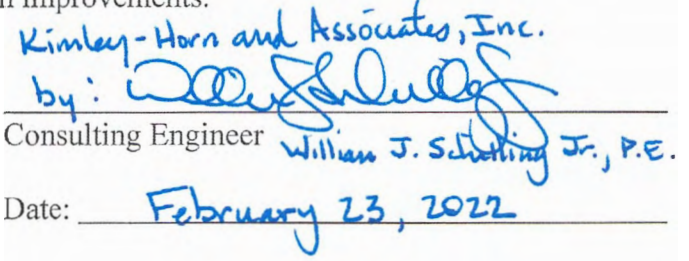 Improvements.
Kimley-Horn and Associates, Inc.
by:
Consulting Engineer William J. Schilling Jr., P.E.
Date: February 23, 2022